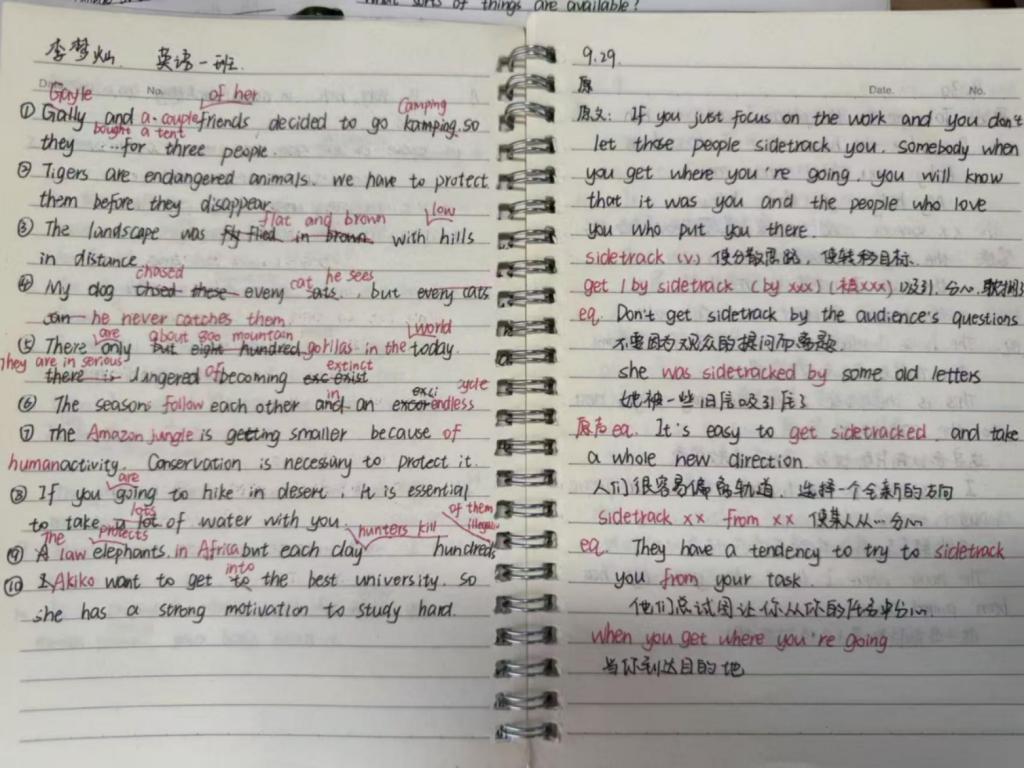 what sorts of things are available?
李梦灿 英语一班
No.
Gayle of her Camping
① Gally and a couple friends decided to go kamping. so
bought a tent
they ... for three people.
② Tigers are endangered animals. we have to protect
them before they disappear.
flat and brown low
③ The landscape was fly flied in brown with hills
in distance
chased cat he sees
④ My dog chsed these every cats, but every cats
can he never catches them.
are about 800 mountain world
⑤ There only but eight hundred gorillas in the today.
They are in serious of extinct
there is dangered becoming exc exist
in exci cycle
⑥ The seasons follow each other and an excor endless
⑦ The Amazon jungle is getting smaller because of
human activity. Conservation is necessary to protect it.
are
⑧ If you going to hike in desert, it is essential
lots of them
to take a lot of water with you.
The protects hunters kill illegally
⑨ A law elephants in Africa but each day hundreds
into
⑩ I Akiko want to get to the best university. so
she has a strong motivation to study hard.
9.29.
原
Date. No.
原文: If you just focus on the work and you don't
let those people sidetrack you. somebody when
you get where you're going. you will know
that it was you and the people who love
you who put you there.
sidetrack (v) 使分散思路, 使转移目标.
get / by sidetrack (by xxx) (被xxx) 吸引. 分心.
eq. Don't get sidetrack by the audience's questions
不要因为观众的提问而离题.
she was sidetracked by some old letters
她被一些旧信吸引住了
原声 eq. It's easy to get sidetracked. and take
a whole new direction.
人们很容易偏离轨道. 选择一个全新的方向
sidetrack xx from xx 使某人从…分心
eq. They have a tendency to try to sidetrack
you from your task.
他们总试图让你从你的任务中分心
when you get where you're going
当你到达目的地